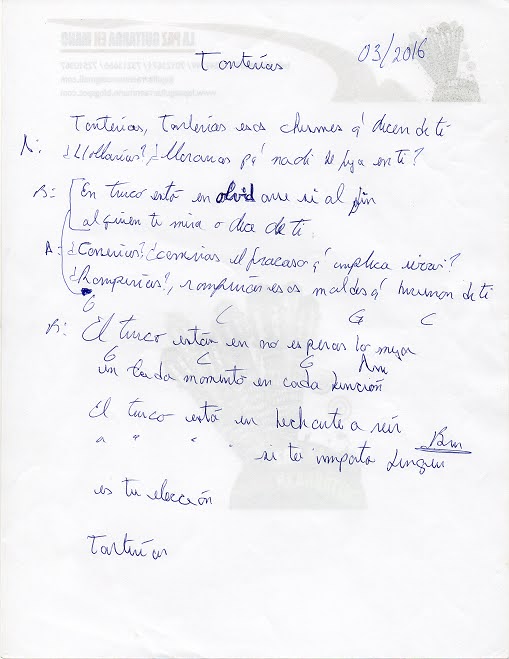 Tonterías
03/2016
Tonterías, Tonterías esos chismes q' dicen de ti
A: ¿Llorarías? ¿llorarías pq' nadie se fija en ti?
B: En truco está en olvidarse si al fin
alguien te mira o dice de ti.
A: ¿Correrías? ¿correrías el fracaso q' implica vivir?
¿Romperías?, romperías esos moldes q' hicieron de ti
G C G C
B: El truco está en no esperar lo mejor
G C G Am
en cada momento en cada función
El truco está en hecharte a reir
" " " " si te importa fingir Bm
es tu elección
Tonterías